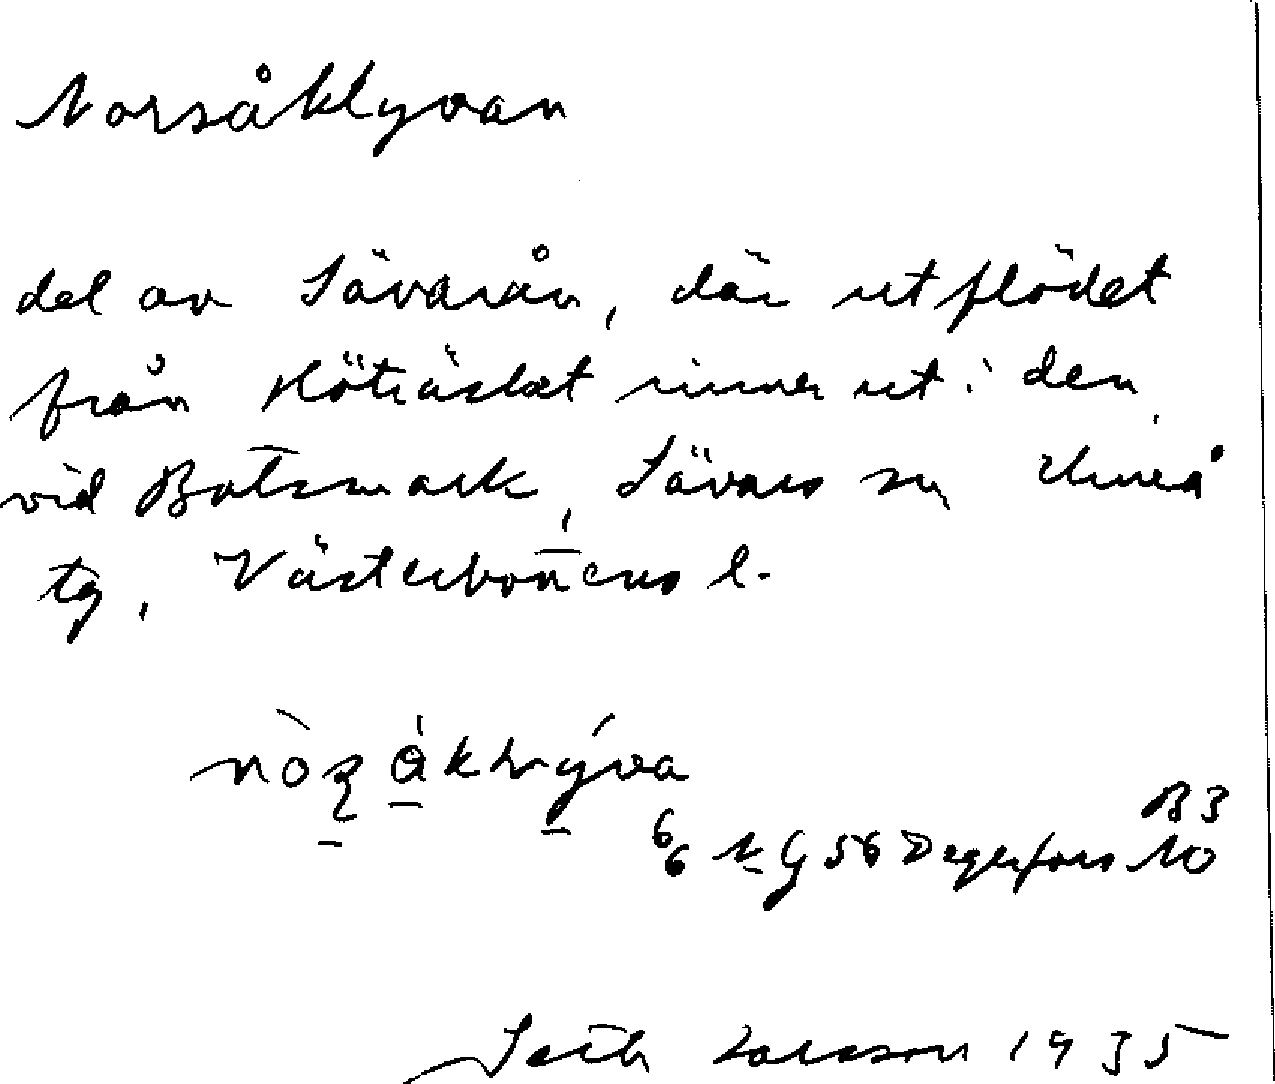 Norsåklyvan
del av Sävarån, där utflödet
från Kötträsket rinner ut i den
vid Botsmark, Sävars sn Umeå
tg, Västerbottens l.
B3
6/6 NG 56 Degerfors NO
Seth Larsson 1935